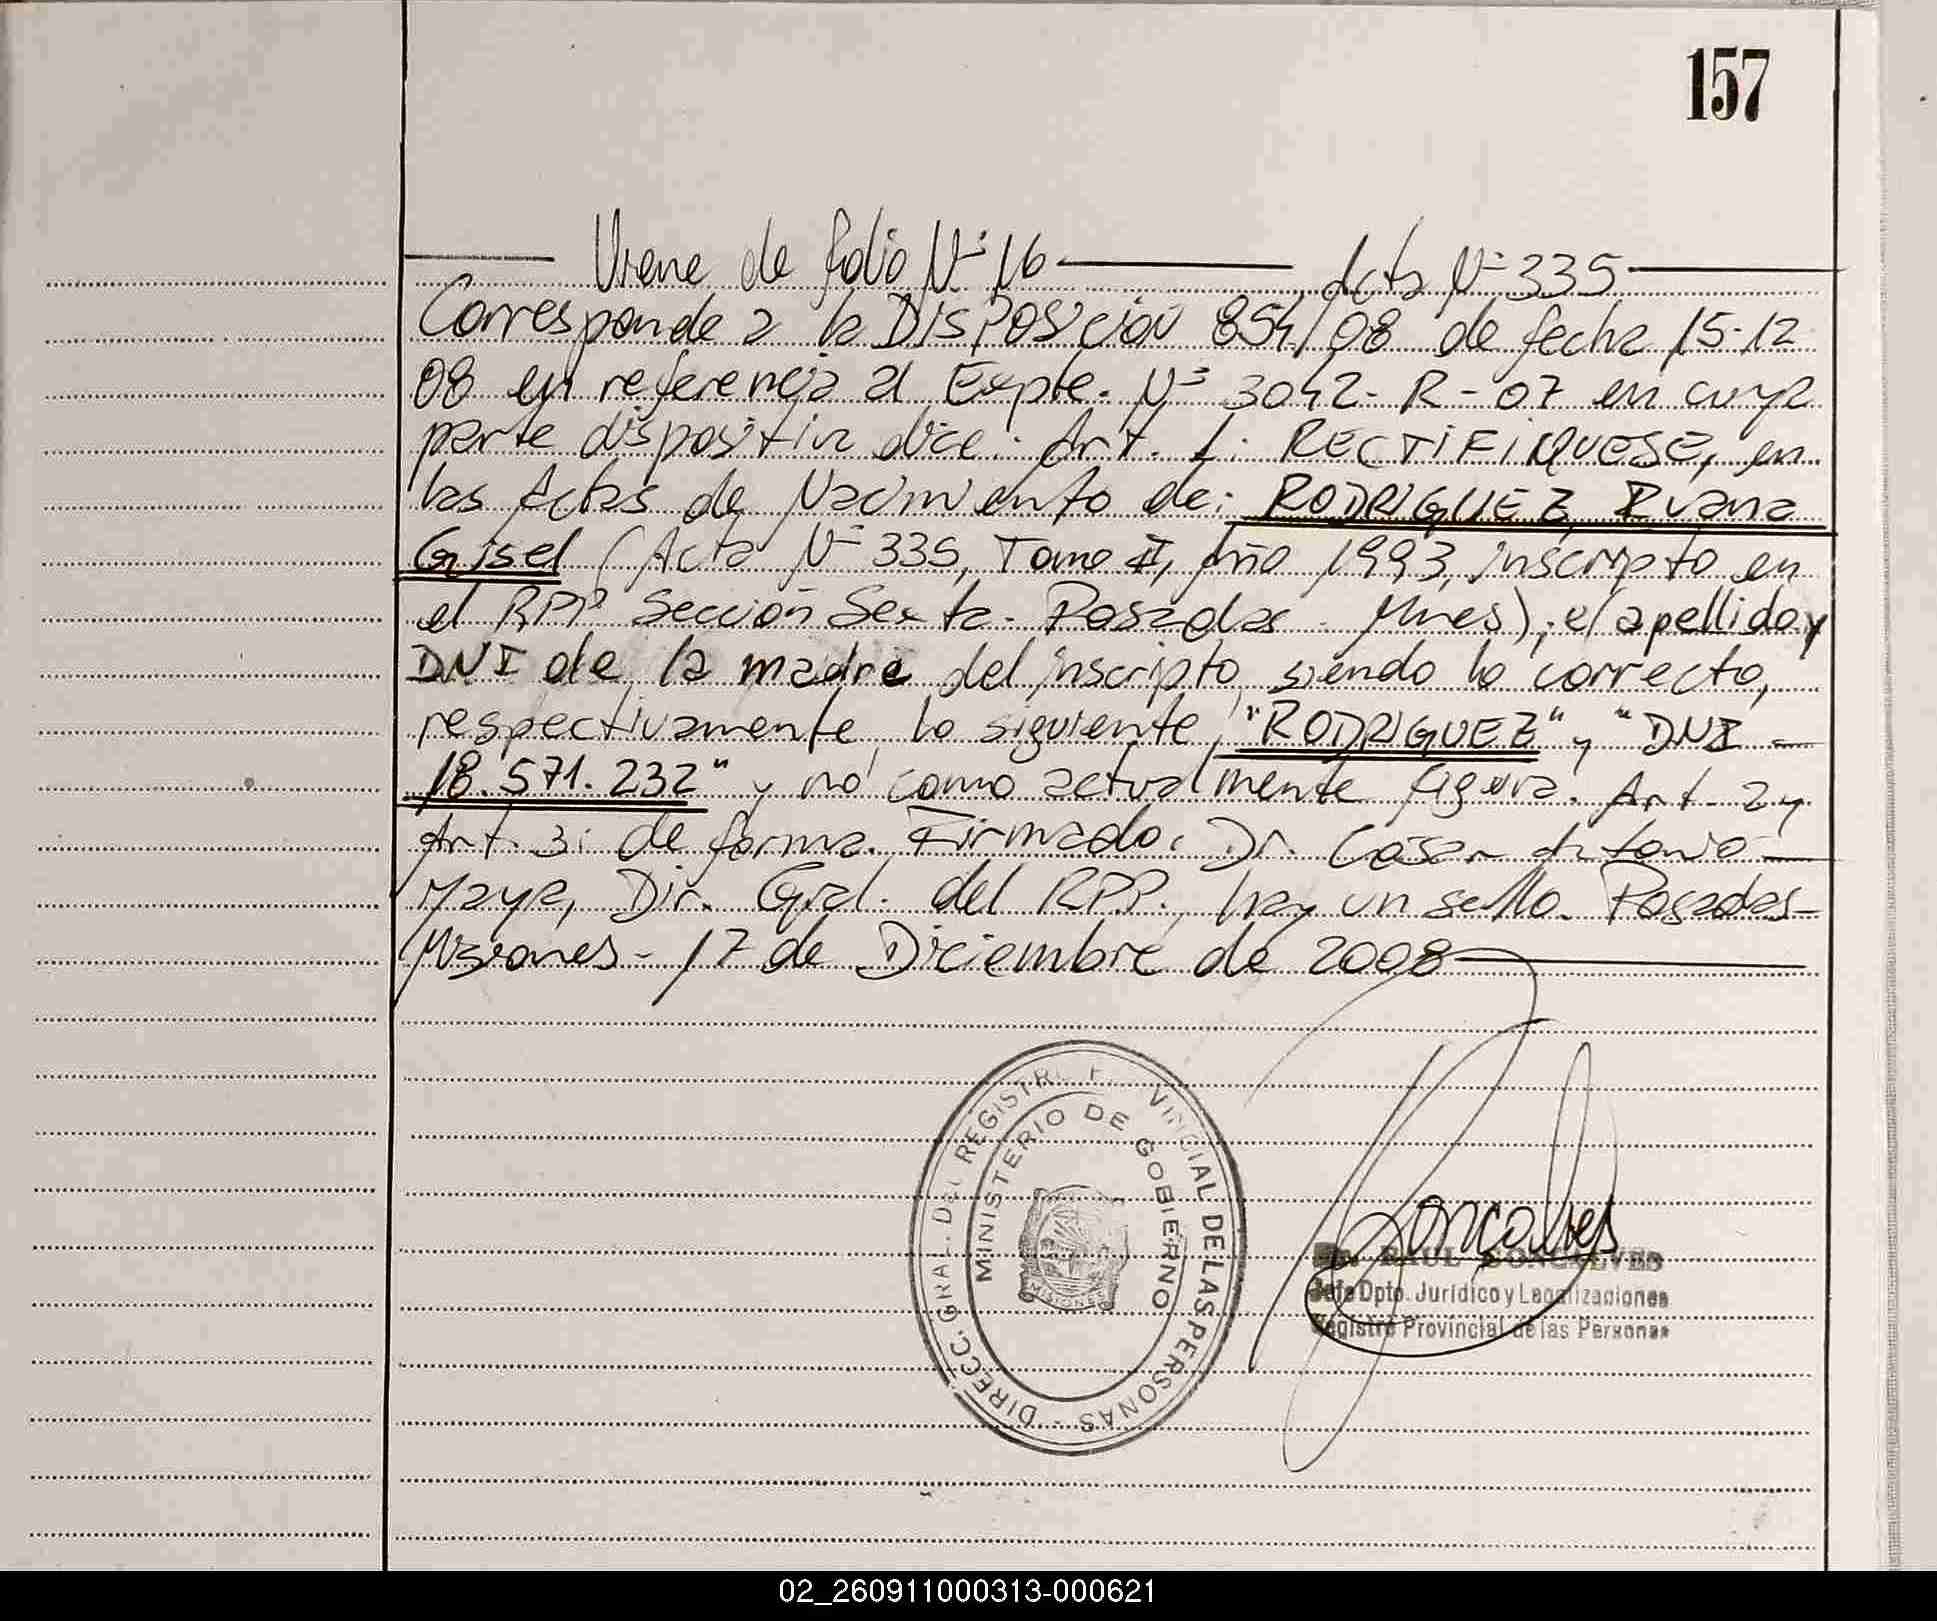 157
Viene de folio Nº 16 Acta Nº 335
Corresponde a la DISPOSICION 854/08 de fecha 15-12
08 en referencia al Expte. Nº 3042-R-07 en cuya
parte dispositiva dice: Art. 1: RECTIFIQUESE, en
las Actas de Nacimiento de: RODRIGUEZ, Ivana
Gisel (Acta Nº 335, Tomo II, Año 1993, inscripto en
el RPP Sección Sexta - Posadas - Mnes); el apellido y
DNI de la madre del inscripto, siendo lo correcto,
respectivamente, lo siguiente "RODRIGUEZ" y "DNI -
18.571.232" y no como actualmente figura. Art. 2 y
Art. 3: de forma. Firmado: Dr. Cesar Antonio
Maya, Dir. Gral. del RPP., hay un sello. Posadas -
Misiones - 17 de Diciembre de 2008
DIRECC. GRAL. DEL REGISTRO PROVINCIAL DE LAS PERSONAS -
MINISTERIO DE GOBIERNO
MISIONES
Goncalves
RAUL GONCALVES
Jefe Dpto. Jurídico y Legalizaciones
Registro Provincial de las Personas
02_260911000313-000621